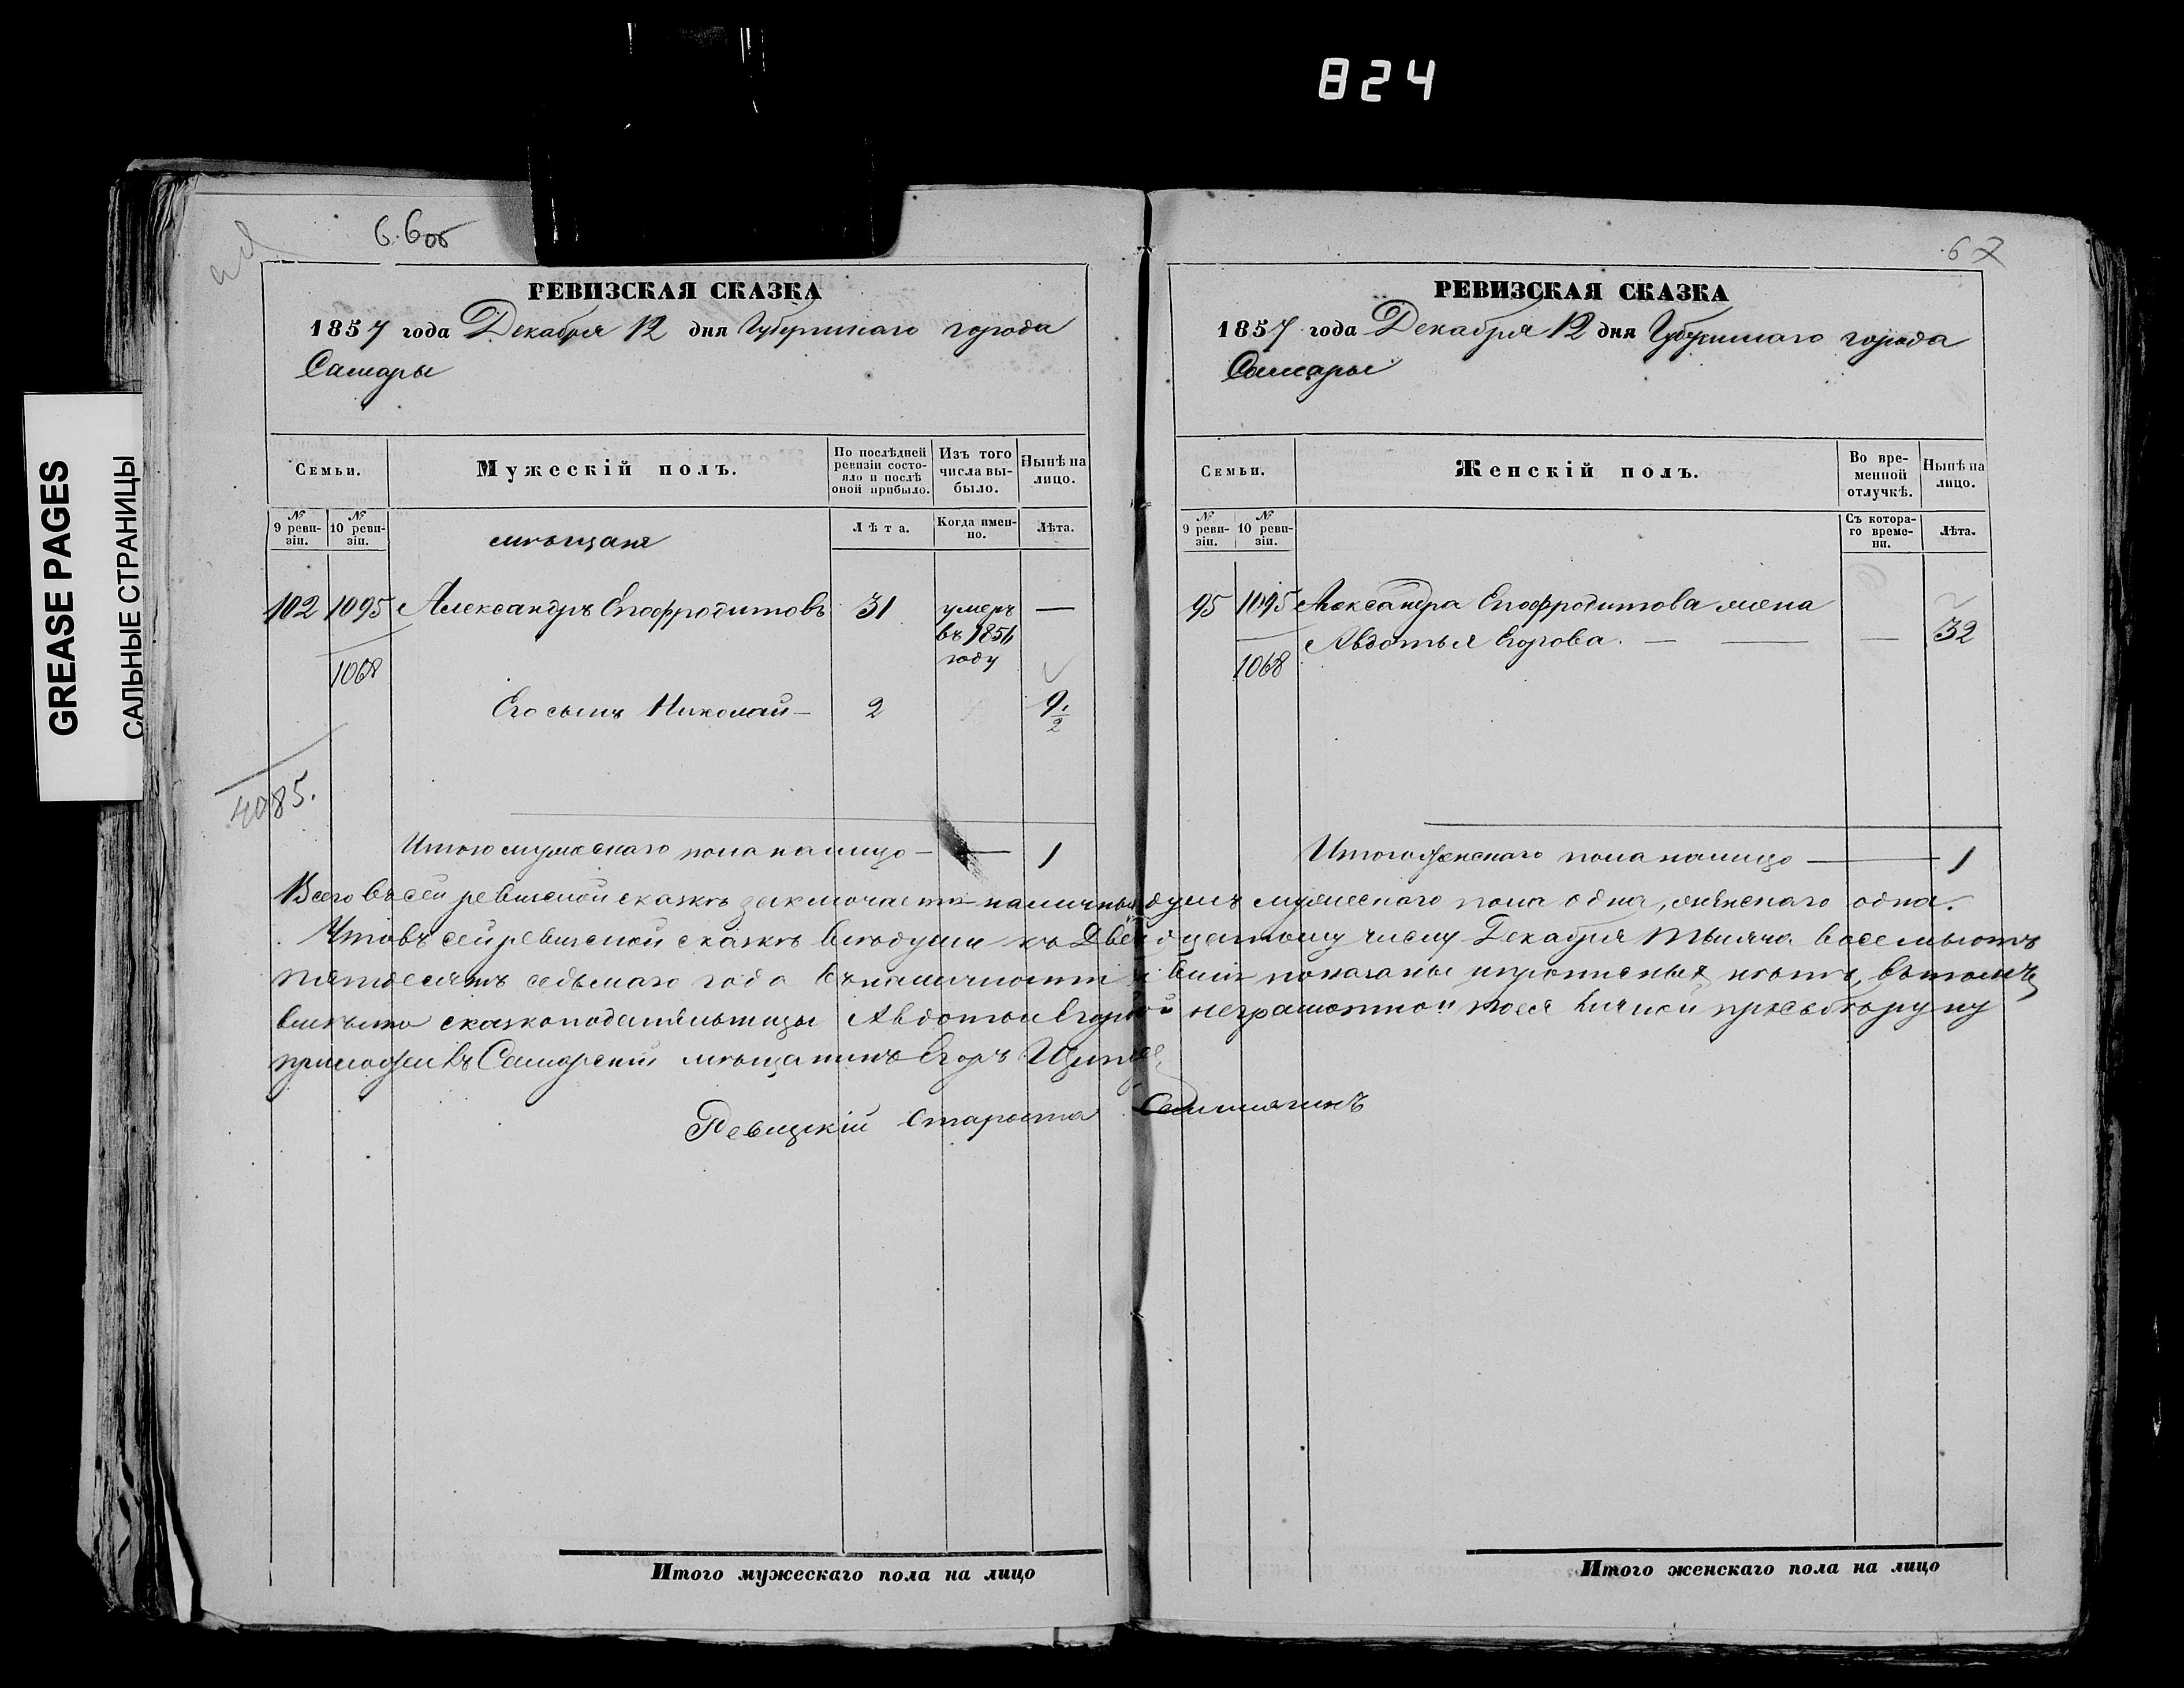 824
GREASE PAGES
САЛЬНЫЕ СТРАНИЦЫ
66об
РЕВИЗСКАЯ СКАЗКА
1857 года Декабря 12 дня Губернскаго города
Самары
Семьи.
Мужескій полъ.
По послѣдней ревизіи состояло и послѣ оной прибыло.
Изъ того числа выбыло.
Нынѣ на лицо.
№ 9 ревизіи.
№ 10 ревизіи.
мѣщане
Лѣта.
Когда именно.
Лѣта.
102 1095 Александръ Епафродитовъ 31 умеръ —
въ 1856
году
1068
Его сынъ Николай — 2 9 1/2
4085.
Итого мужескаго пола налицо — 1
67
РЕВИЗСКАЯ СКАЗКА
1857 года Декабря 12 дня Губернскаго города
Самары
Семьи.
Женскій полъ.
Во временной отлучкѣ.
Нынѣ на лицо.
№ 9 ревизіи.
№ 10 ревизіи.
Съ котораго времени.
Лѣта.
95 1095 Александра Епофродитова жена
Авдотья Егорова. — — 32
1068
Итого женскаго пола налицо — 1
Всего въ сей ревизской сказкѣ заключается наличныхъ душъ мужескаго пола одна, женскаго одна.
Что въ сей ревизской сказкѣ всѣ души къ Двенадцатому числу Декабря тысяча восемьсотъ
пятдесятъ седьмаго года въ наличности бывшія показаны и прописныхъ нѣтъ, въ томъ
вмѣсто сказкоподательницы Авдотьи Егоровой неграмотной по ея личной прозьбѣ руку
приложилъ Самарскій мѣщанинъ Егоръ
Ревизскій Староста
Итого мужескаго пола на лицо
Итого женскаго пола на лицо